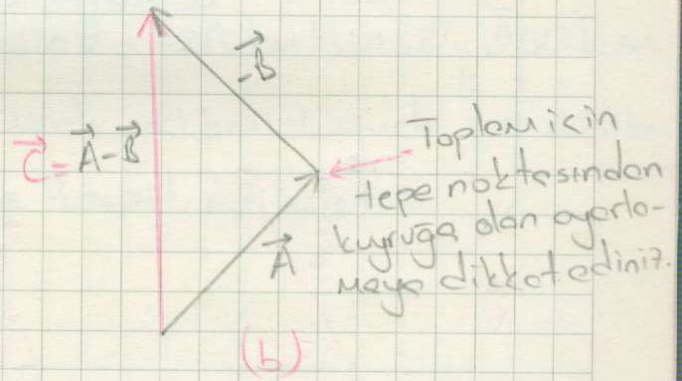 -B⃗
C⃗=A⃗-B⃗
Toplam için
tepe noktasından
kuyruğa olan ayarla-
maya dikkat ediniz.
A⃗
(b)